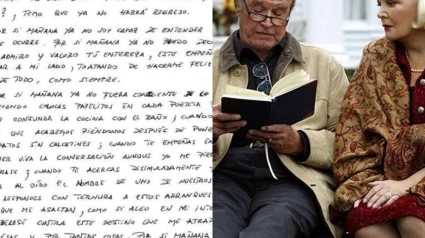 ; TEMO QUE YA NO HABRÁ REGRESO.
POR SI MAÑANA YA NO SOY CAPAZ DE ENTENDER
OCURRE. POR SI MAÑANA YA NO PUEDO
ADMIRO Y VALORO TU ENTEREZA, ESTE EMPEÑO
A MI LADO, TRATANDO DE HACERME FELIZ
DE TODO, COMO SIEMPRE.
SI MAÑANA YA NO FUERA CONSCIENTE DE LO
PAPELITOS EN CADA PUERTA
CONFUNDA LA COCINA CON EL BAÑO; CUANDO
QUE ACABEMOS RIÉNDONOS DESPUÉS DE
SIN CALCETINES; CUANDO TE EMPEÑAS EN
VIVA LA CONVERSACIÓN AUNQUE YO ME
; CUANDO TE ACERCAS DISIMULADAMENTE
AL OÍDO EL NOMBRE DE UNO DE NUESTROS
RESPONDES CON TERNURA A ESTOS ARRANQUES
QUE ME ASALTAN, COMO SI ALGO EN MI
CONTRA ESTE DESTINO QUE ME
Y POR TANTAS COSAS. POR SI MAÑANA